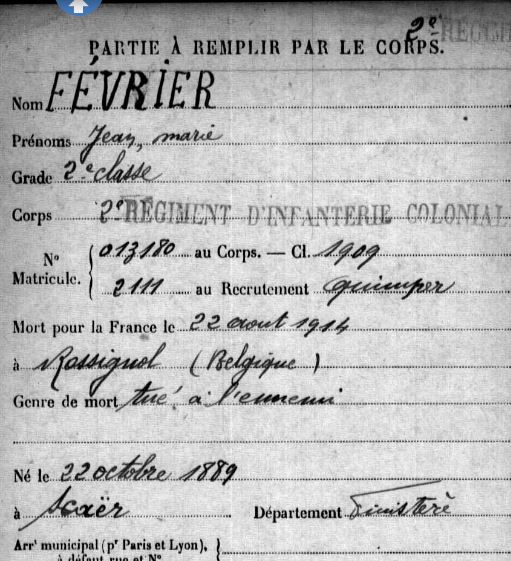 2e REGIM
PARTIE À REMPLIR PAR LE CORPS.
Nom FÉVRIER
Prénoms Jean, marie
Grade 2e classe
Corps 2e RÉGIMENT D'INFANTERIE COLONIAL
No Matricule. { 013180 au Corps. — Cl. 1909
2111 au Recrutement Quimper
Mort pour la France le 22 aout 1914
à Rossignol (Belgique)
Genre de mort tué à l'ennemi
Né le 22 octobre 1889
à Scaër Département Finistère
Arrt municipal (pr Paris et Lyon), }
à défaut rue et No